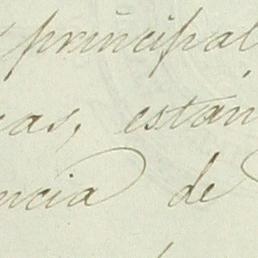 principal
cas, están
ncia de